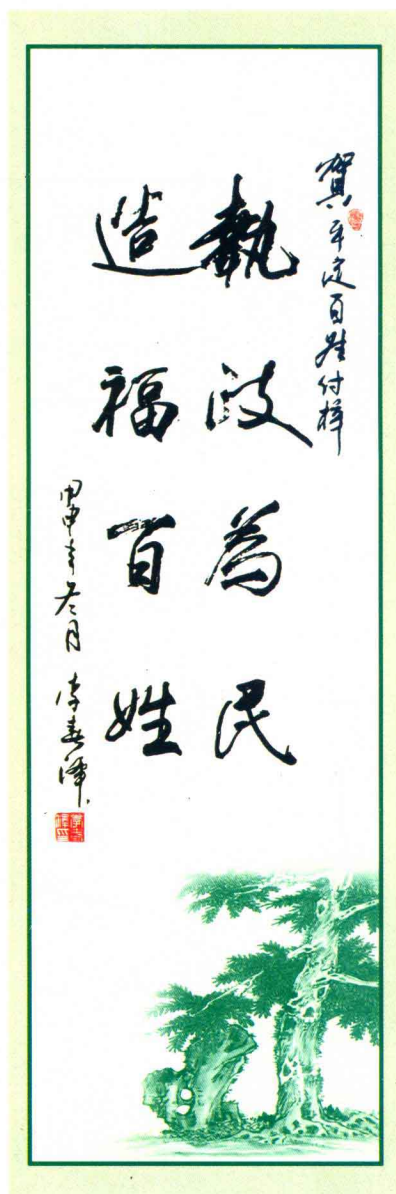 賀平定百姓付梓
執政為民
造福百姓
甲申年冬月 李春澤